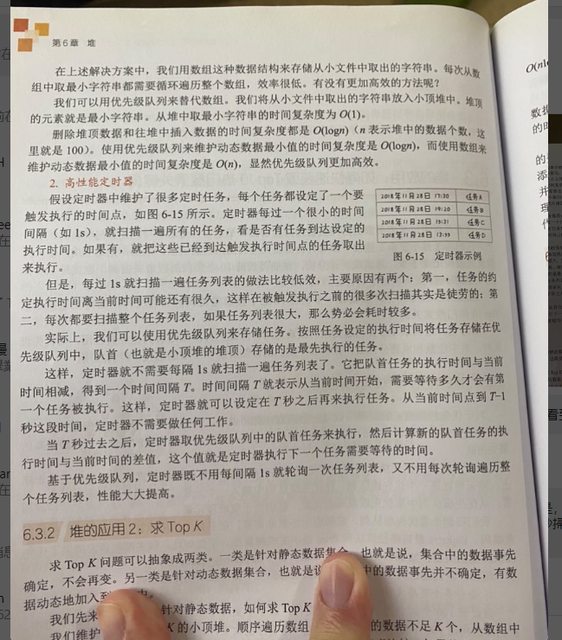 第6章 堆
在上述解决方案中，我们用数组这种数据结构来存储从小文件中取出的字符串。每次从数
组中取最小字符串都需要循环遍历整个数组，效率很低。有没有更加高效的方法呢？
我们可以用优先级队列来替代数组。我们将从小文件中取出的字符串放入小顶堆中。堆顶
的元素就是最小字符串。从堆中取最小字符串的时间复杂度为 O(1)。
删除堆顶数据和往堆中插入数据的时间复杂度都是 O(logn)（n 表示堆中的数据个数，这
里就是 100）。使用优先级队列来维护动态数据最小值的时间复杂度是 O(logn)，而使用数组来
维护动态数据最小值的时间复杂度是 O(n)，显然优先级队列更加高效。
2. 高性能定时器
假设定时器中维护了很多定时任务，每个任务都设定了一个要
触发执行的时间点，如图 6-15 所示。定时器每过一个很小的时间
间隔（如 1s），就扫描一遍所有的任务，看是否有任务到达设定的
执行时间。如果有，就把这些已经到达触发执行时间点的任务取出
来执行。
2018年11月28日 17:30 任务A
2018年11月28日 19:20 任务B
2018年11月28日 15:31 任务C
2018年11月28日 13:55 任务D
图 6-15 定时器示例
但是，每过 1s 就扫描一遍任务列表的做法比较低效，主要原因有两个：第一，任务的约
定执行时间离当前时间可能还有很久，这样在被触发执行之前的很多次扫描其实是徒劳的；第
二，每次都要扫描整个任务列表，如果任务列表很大，那么势必会耗时较多。
实际上，我们可以使用优先级队列来存储任务。按照任务设定的执行时间将任务存储在优
先级队列中，队首（也就是小顶堆的堆顶）存储的是最先执行的任务。
这样，定时器就不需要每隔 1s 就扫描一遍任务列表了。它把队首任务的执行时间与当前
时间相减，得到一个时间间隔 T。时间间隔 T 就表示从当前时间开始，需要等待多久才会有第
一个任务被执行。这样，定时器就可以设定在 T 秒之后再来执行任务。从当前时间点到 T−1
秒这段时间，定时器不需要做任何工作。
当 T 秒过去之后，定时器取优先级队列中的队首任务来执行，然后计算新的队首任务的执
行时间与当前时间的差值，这个值就是定时器执行下一个任务需要等待的时间。
基于优先级队列，定时器既不用每间隔 1s 就轮询一次任务列表，又不用每次轮询遍历整
个任务列表，性能大大提高。
6.3.2 堆的应用 2：求 Top K
求 Top K 问题可以抽象成两类。一类是针对静态数据集合，也就是说，集合中的数据事先
确定，不会再变。另一类是针对动态数据集合，也就是说 中的数据事先并不确定，有数
据动态地加入到
我们先来 针对静态数据，如何求 Top K
我们维护 K 的小顶堆。顺序遍历数组 的数据不足 K 个，从数组中